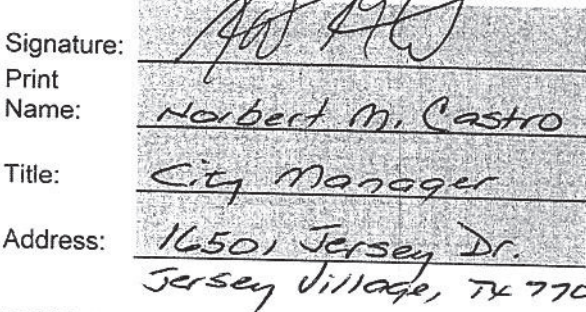 Signature:
Print
Name: Norbert M. Castro
Title: City Manager
Address: 16501 Jersey Dr.
Jersey Village, TX 770